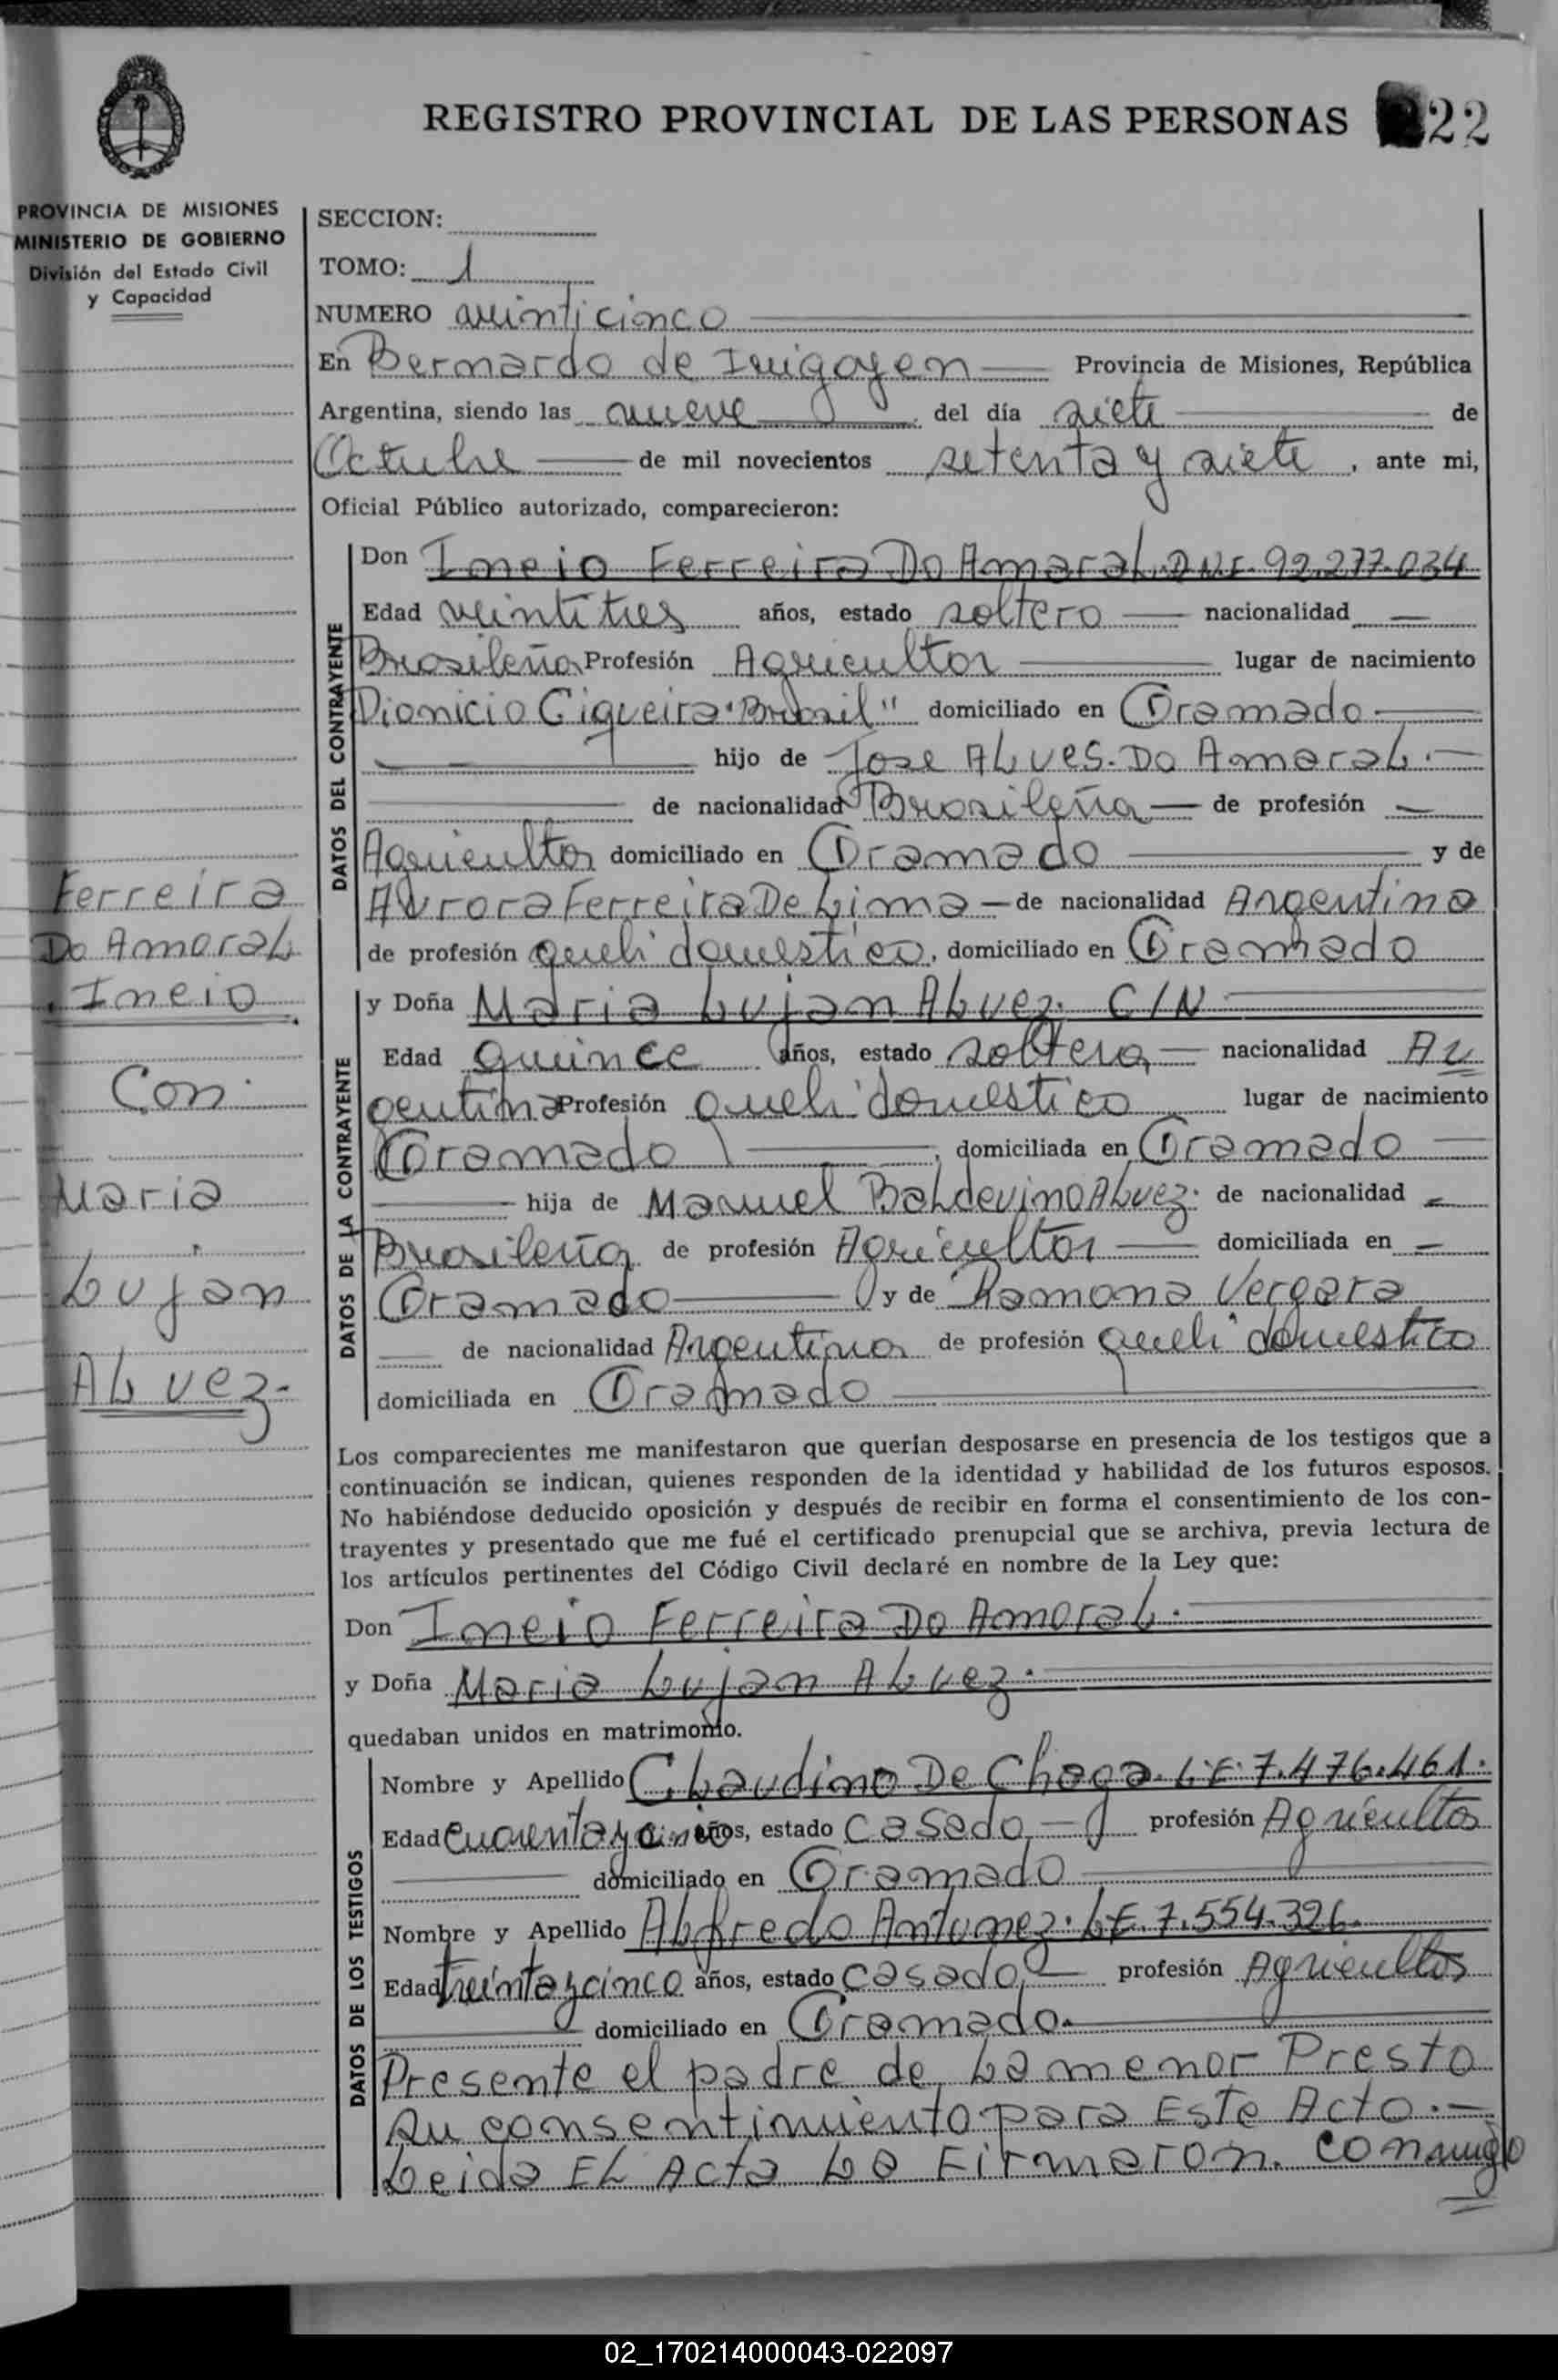 REGISTRO PROVINCIAL DE LAS PERSONAS 22
PROVINCIA DE MISIONES
MINISTERIO DE GOBIERNO
División del Estado Civil
y Capacidad
SECCION:
TOMO: 1
NUMERO veinticinco
En Bernardo de Irrigoyen Provincia de Misiones, República
Argentina, siendo las nueve del día siete de
Octubre de mil novecientos setenta y siete, ante mi,
Oficial Público autorizado, comparecieron:
DATOS DEL CONTRAYENTE
Don Ineio Ferreira Do Amaral. DNI. 92.277.034
Edad veintitres años, estado soltero nacionalidad
Brasileña Profesión Agricultor lugar de nacimiento
Dionicio Ciqueira "Brasil" domiciliado en Gramado
hijo de Jose Alves Do Amaral.
de nacionalidad Brasileña de profesión
Agricultor domiciliado en Gramado y de
Aurora Ferreira De Lima de nacionalidad Argentina
de profesión queh. domestico, domiciliado en Gramado
Ferreira
Do Amaral
Ineio
Con
Maria
Lujan
Alvez.
DATOS DE LA CONTRAYENTE
y Doña Maria Lujan Alvez. C/N
Edad quince años, estado soltera nacionalidad Ar
gentina Profesión queh. domestico lugar de nacimiento
Gramado, domiciliada en Gramado
hija de Manuel Baldevino Alvez. de nacionalidad
Brasileña de profesión Agricultor domiciliada en
Gramado y de Ramona Vergara
de nacionalidad Argentina de profesión queh. domestico
domiciliada en Gramado
Los comparecientes me manifestaron que querían desposarse en presencia de los testigos que a
continuación se indican, quienes responden de la identidad y habilidad de los futuros esposos.
No habiéndose deducido oposición y después de recibir en forma el consentimiento de los con-
trayentes y presentado que me fué el certificado prenupcial que se archiva, previa lectura de
los artículos pertinentes del Código Civil declaré en nombre de la Ley que:
Don Ineio Ferreira Do Amaral.
y Doña Maria Lujan Alvez.
quedaban unidos en matrimonio.
DATOS DE LOS TESTIGOS
Nombre y Apellido Claudino De Chaga. L.E. 7.476.461.
Edad cuarenta y cinco años, estado casado profesión Agricultor
domiciliado en Gramado
Nombre y Apellido Alfredo Antunez. L.E. 7.554.326.
Edad treinta y cinco años, estado casado profesión Agricultor
domiciliado en Gramado.
Presente el padre de la menor Presto
su consentimiento para Este Acto.
Leida El Acta La Firmaron. conmigo
02_170214000043-022097